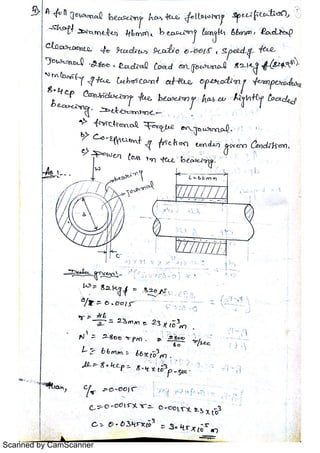 A full Journal bearing has the following specification,
Shaft Diameter 46mm, bearing length 66mm. Radial
clearance to radius ratio 0.0015, speed of the
Journal 2800. Radial Load on Journal 82kgf (820N)
viscosity of the Lubricant at the operating temperature
8.4cp Considering the bearing has a lightly loaded
bearing. Determine -
a) frictional Torque on Journal.
b) Co-efficient of friction under given Condition.
c) Power loss in the bearing.
W
bearing
Journal
L=66mm
c
Data given:-
W = 82kgf = 820N
c/r = 0.0015
r = 46/2 = 23mm = 23×10⁻³ m.
N' = 2800 rpm. = 2800/60 r/sec
L = 66mm = 66×10⁻³ m
μ = 8.4cp = 8.4×10⁻³ p-sec
c/r = 0.0015
C = 0.0015×r = 0.0015×23×10⁻³
C = 0.0345×10⁻³ = 3.45×10⁻⁵ m
Scanned by CamScanner